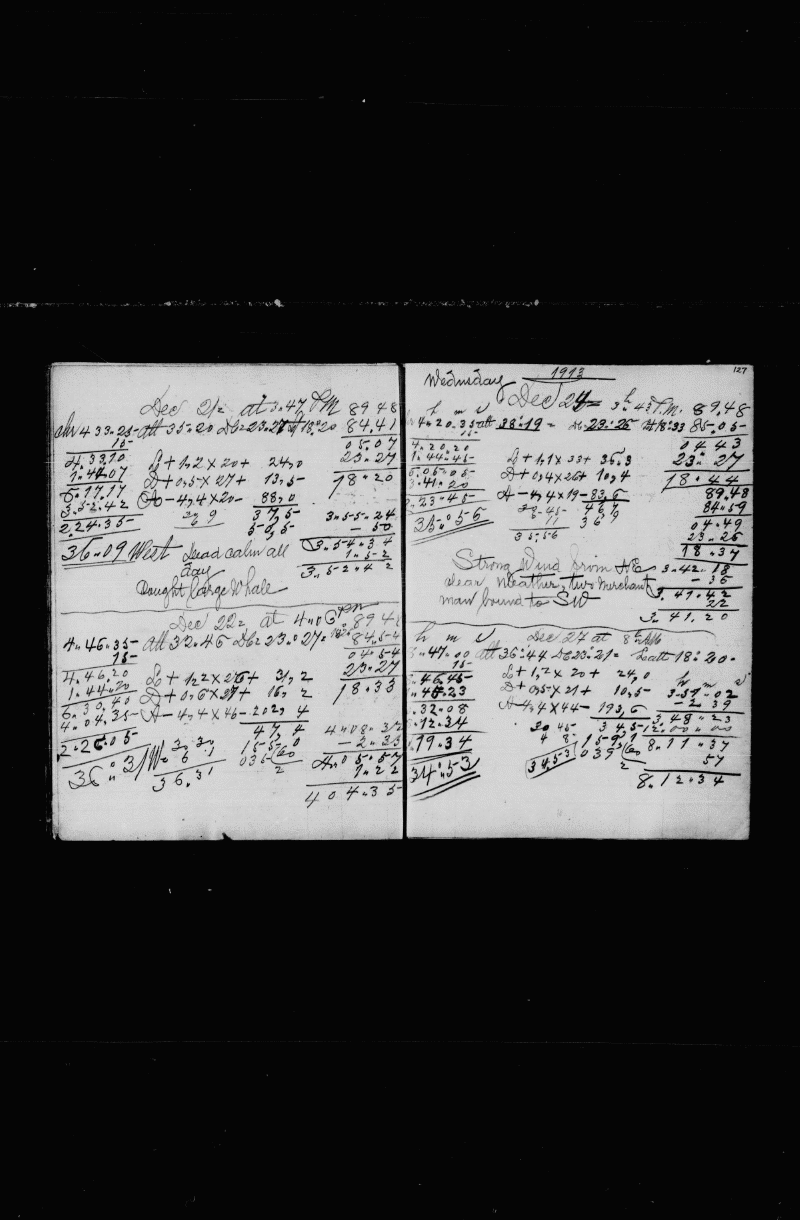 Dec 21= at 3.47 PM 89 48
4 33.25- att 35.20 Dc=23.27 18.20 84.41
15- 05.07
4.33.10 L+1,2×20+ 24,0 23.27
1.44.07 D+0,5×27+ 13,5- 18.20
6.17.17 A-4,4×20- 88,0
3.52.42 37,5- 3.55.24
2.24.35- 50,5- - 50
36.09 West Dead calm all 3.54.34
day 1.52
3.52.42
Caught large Whale
Dec 22= at 4.06 pm 89 48
4.46.35- att 32.46 Dc=23.027= 84,54
15- 04 54
4.46.20 L+1,2×26+ 31,2 23.27
1.44.20 D+0,6×27+ 16,2 18.33
6.30.40 A-4,4×46- 202,4
4.04.35- 47,4 4.08.32
2.26.05 3.30 155,0 - 2.35
36.31 W. 6 1 035 (60 4.05.57
36.31 2 1.22
4 04.35
1913 127
Wednsday Dec 24= 3h.43 P.M. 89.48
h m s
4.20.35- att 38°.19= Dc 23°.26 18°.33 85.05-
15- 04 43
4.20.20 L+1,1×33+ 36,3 23.27
1.44.45- D+0,4×26+ 10,4 18.44
6.05.05- A-4,4×19- 83,6 89.48
3.41.20 84.59
2.23.45- 04.49
35°.56 11 36 23.26
35.56 18.37
Strong Wind from NE 3.42.18
clear weather, two Merchant - 36
man bound to SW 3.41.42
22
3.41.20
h m s Dec 27 at 8h AM
.47.00 att 36°.44 Dc 23°.21= Latt 18°.20-
15- L+1,2×20+ 24,0 h m s
.46.45- D+0,5×21+ 10,5- 3.51.02
.45.23 A-4,4×44- 193,6 - 2.39
.32.08 30 45 345- 3.48.23
.12.34 4 8 159,1 12.00.00
.19.34 3453 039 (60 8.11.37
34.53 2 57
8.12.34